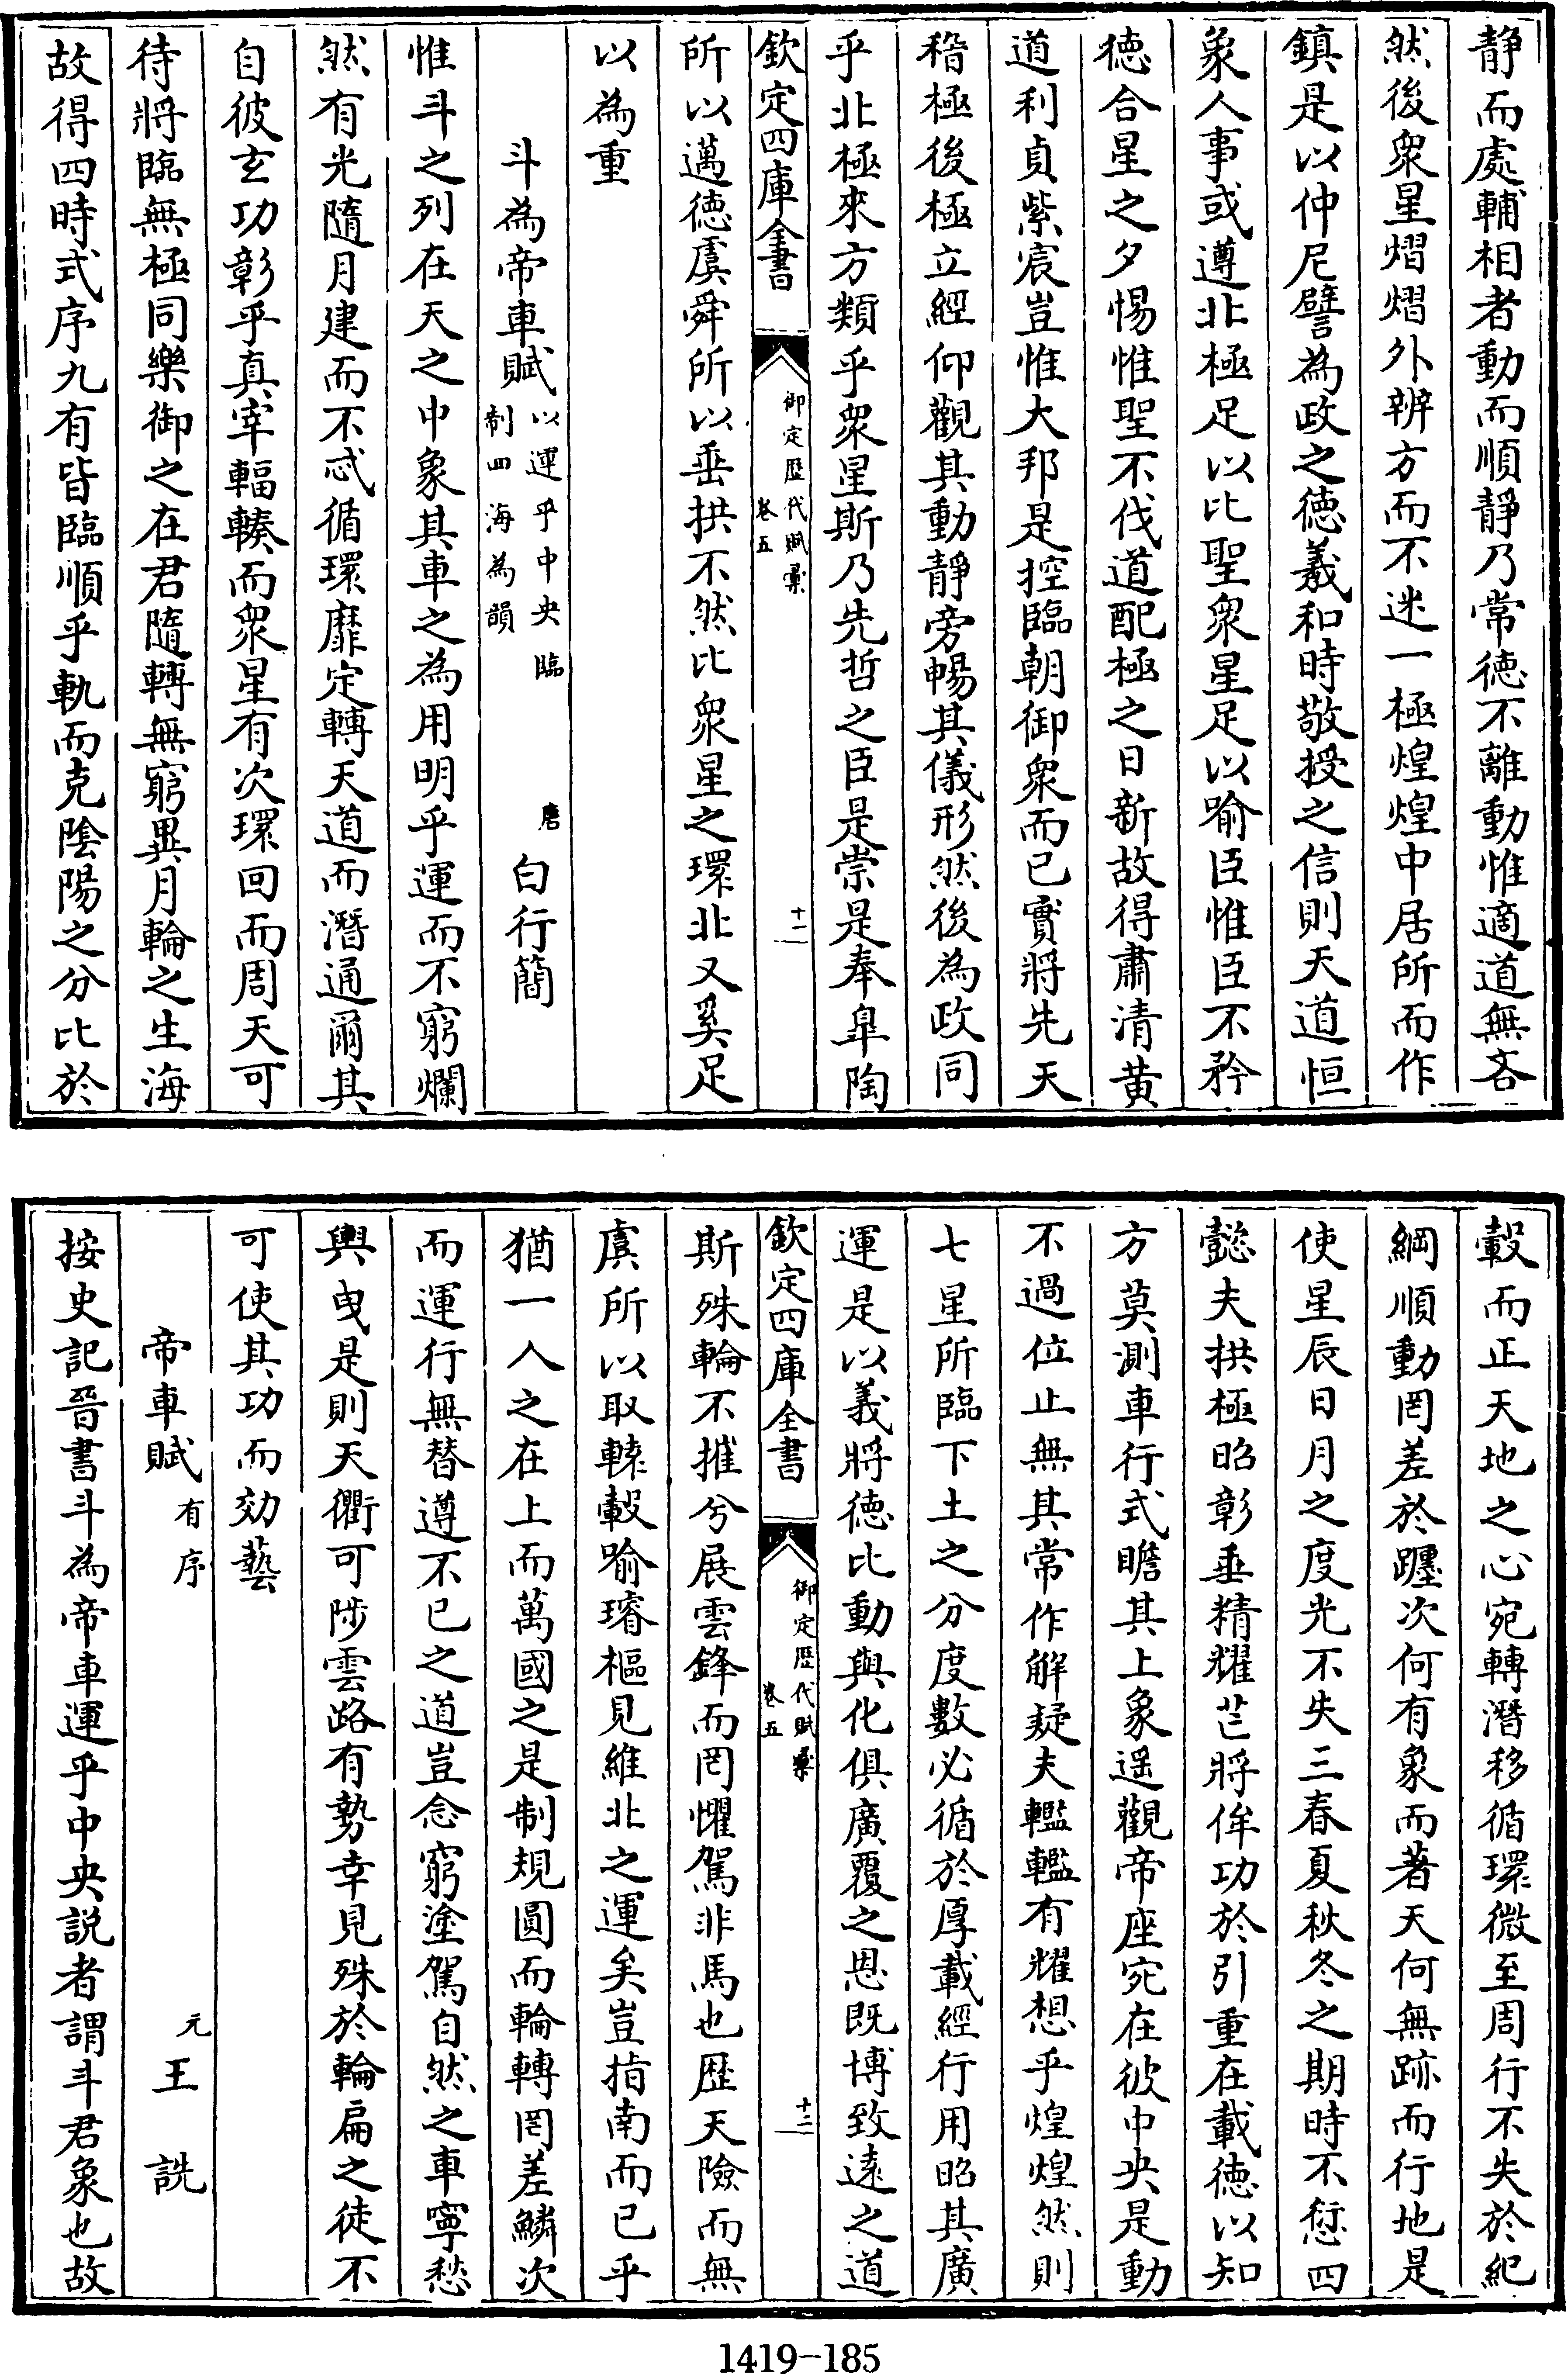 静而處輔相者動而順静乃常徳不離動惟適道無吝
然後衆星熠熠外辨方而不迷一極煌煌中居所而作
鎮是以仲尼譬為政之徳羲和時敬授之信則天道恒
象人事或遵北極足以比聖衆星足以喻臣惟臣不矜
徳合星之夕惕惟聖不伐道配極之日新故得肅清黄
道利貞紫宸豈惟大邦是控臨朝御衆而已實將先天
稽極後極立經仰觀其動靜旁暢其儀形然後為政同
乎北極來方類乎衆星斯乃先哲之臣是崇是奉皐陶
欽定四庫全書
御定歴代賦彙
卷五
十一
所以邁徳虞舜所以垂拱不然比衆星之環北又奚足
以為重
斗為帝車賦 以運乎中央臨
制四海為韻
唐 白行簡
惟斗之列在天之中象其車之為用明乎運而不窮爛
然有光隨月建而不忒循環靡定轉天道而潛通爾其
自彼玄功彰乎真宰輻輳而衆星有次環回而周天可
待將臨無極同樂御之在君隨轉無窮異月輪之生海
故得四時式序九有皆臨順乎軌而克陰陽之分比於
轂而正天地之心宛轉潛移循環微至周行不失於紀
綱順動罔差於躔次何有象而著天何無跡而行地是
使星辰日月之度光不失三春夏秋冬之期時不愆四
懿夫拱極昭彰垂精耀芒將侔功於引重在載徳以知
方莫測車行式瞻其上象遥觀帝座宛在彼中央是動
不過位止無其常作解疑夫轞轞有耀想乎煌煌然則
七星所臨下土之分度數必循於厚載經行用昭其廣
運是以義將徳比動與化俱廣覆之恩既博致遠之道
欽定四庫全書
御定歴代賦彙
卷五
十二
斯殊輪不摧兮展雲鋒而罔懼駕非馬也歴天險而無
虞所以取轅轂喻璿樞見維北之運矣豈指南而已乎
猶一人之在上而萬國之是制規圓而輪轉罔差鱗次
而運行無替遵不已之道豈念窮塗駕自然之車寧愁
輿曳是則天衢可陟雲路有勢幸見殊於輪扁之徒不
可使其功而効藝
帝車賦 有序
元 王 詵
按史記晉書斗為帝車運乎中央説者謂斗君象也故
1419-185